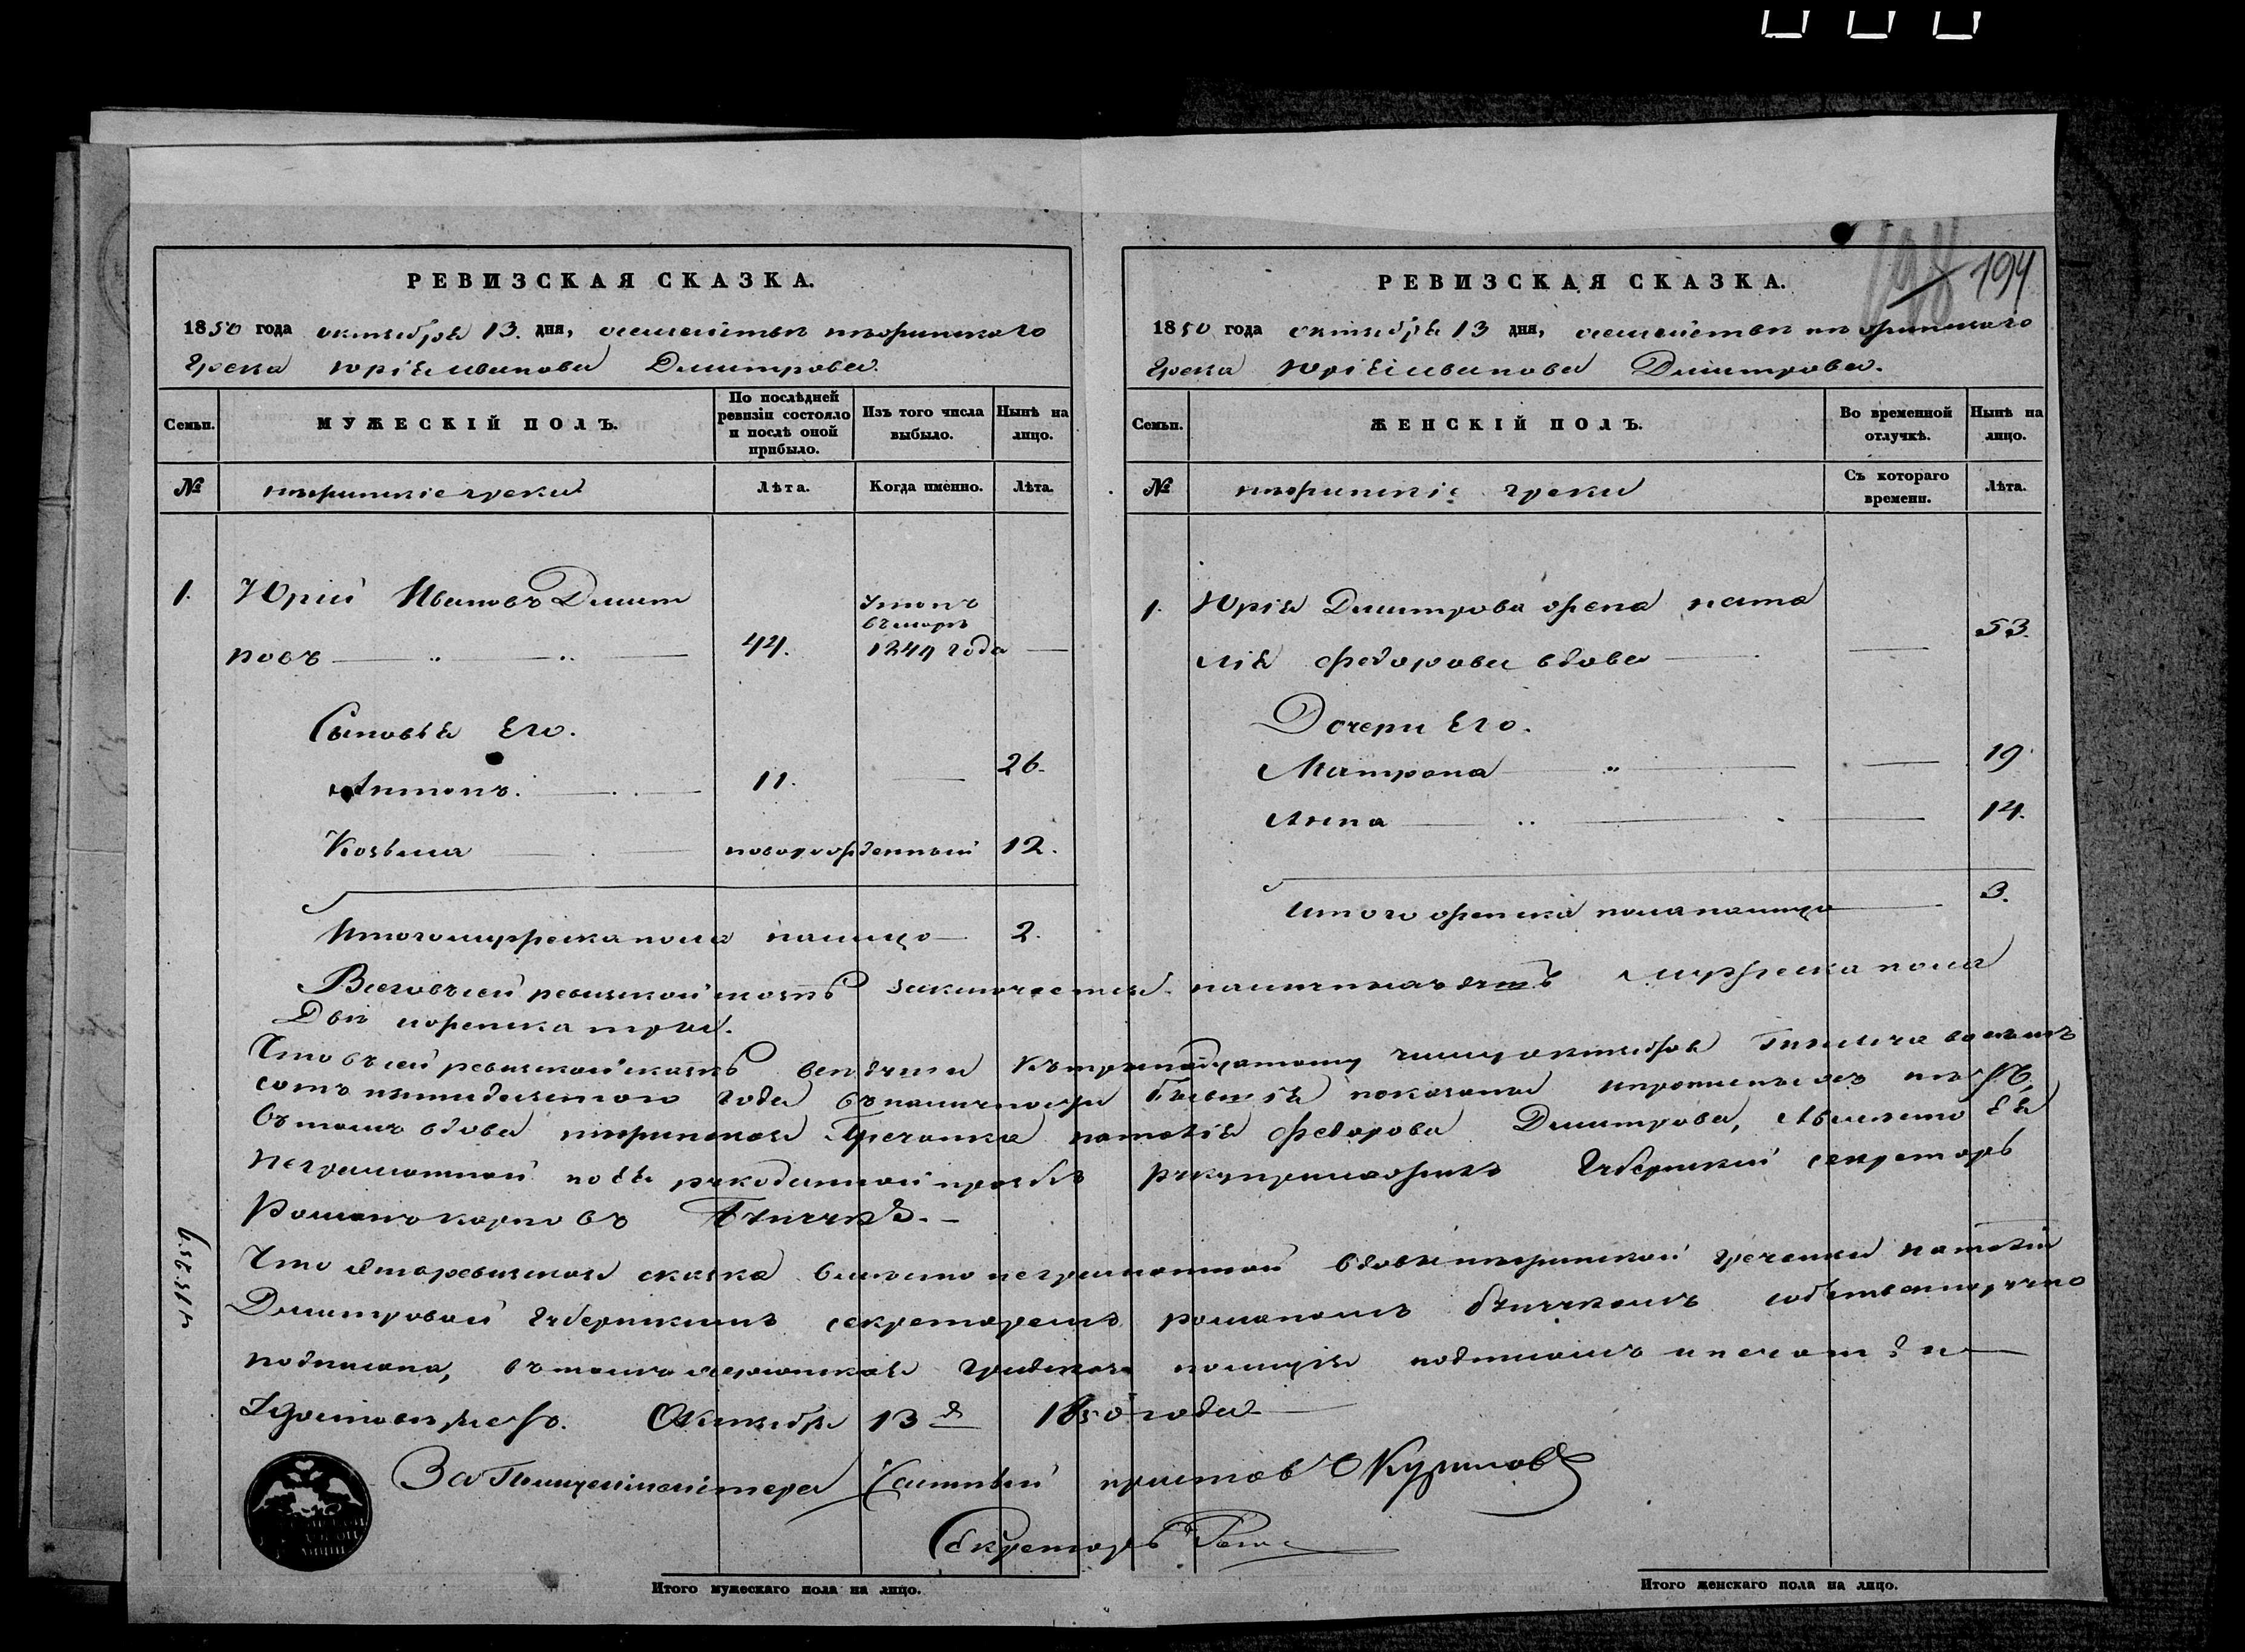 194
РЕВИЗСКАЯ СКАЗКА.
1850 года октября 13. дня, семейства нѣжинскаго
Грека Юрія Иванова Димитрова.
Семьи.
МУЖЕСКІЙ ПОЛЪ.
По послѣдней ревизіи состояло и послѣ оной прибыло.
Изъ того числа выбыло.
Нынѣ на лицо.
№
нѣжинскіе греки
Лѣта.
Когда именно.
Лѣта.
1. Юрій Ивановъ Димит
ровъ 44. 1844 года
Сыновья Его.
Антонъ. 11. 26.
Козьма новорожденный 12.
Итого мужеска пола налицо 2.
РЕВИЗСКАЯ СКАЗКА.
1850 года октября 13 дня, семейства нѣжинскаго
Грека Юрія Иванова Димитрова.
Семьи.
ЖЕНСКІЙ ПОЛЪ.
Во временной отлучкѣ.
Нынѣ на лицо.
№
нѣжинскіе греки
Съ котораго времени.
Лѣта.
1. Юрія Димитрова жена Ната
лія Федорова вдова 53.
Дочери Его.
Матрона 19.
Анна 14.
Итого женска пола налицо 3.
Всего въ сей ревизской сказкѣ заключается наличныхъ душъ мужеска пола
Двѣ и женска три.
Что въ сей ревизской сказкѣ всѣ души къ тринадцатому числу октября Тысяча восемь
сотъ пятидесятого года въ наличности бывшія показаны и прописныхъ нѣтъ,
Въ томъ вдова нѣжинская Гречанка Наталія Федорова Димитрова, А вместо Ея
Неграмотной по Ея рукоданной прозьбѣ руку приложилъ Губернскій секретарь
Романъ Карповъ
Что эта ревизская сказка вместо неграмотной вдовы нѣжинской гречанки Наталіи
Димитровой Губернскимъ секретаремъ Романомъ собственноручно
подписана, въ томъ градская полиція подписомъ и печатью
Октября 13 д 1850 года
За Полицеймейстера Частный приставъ
Секретарь
Итого мужескаго пола на лицо.
Итого женскаго пола на лицо.